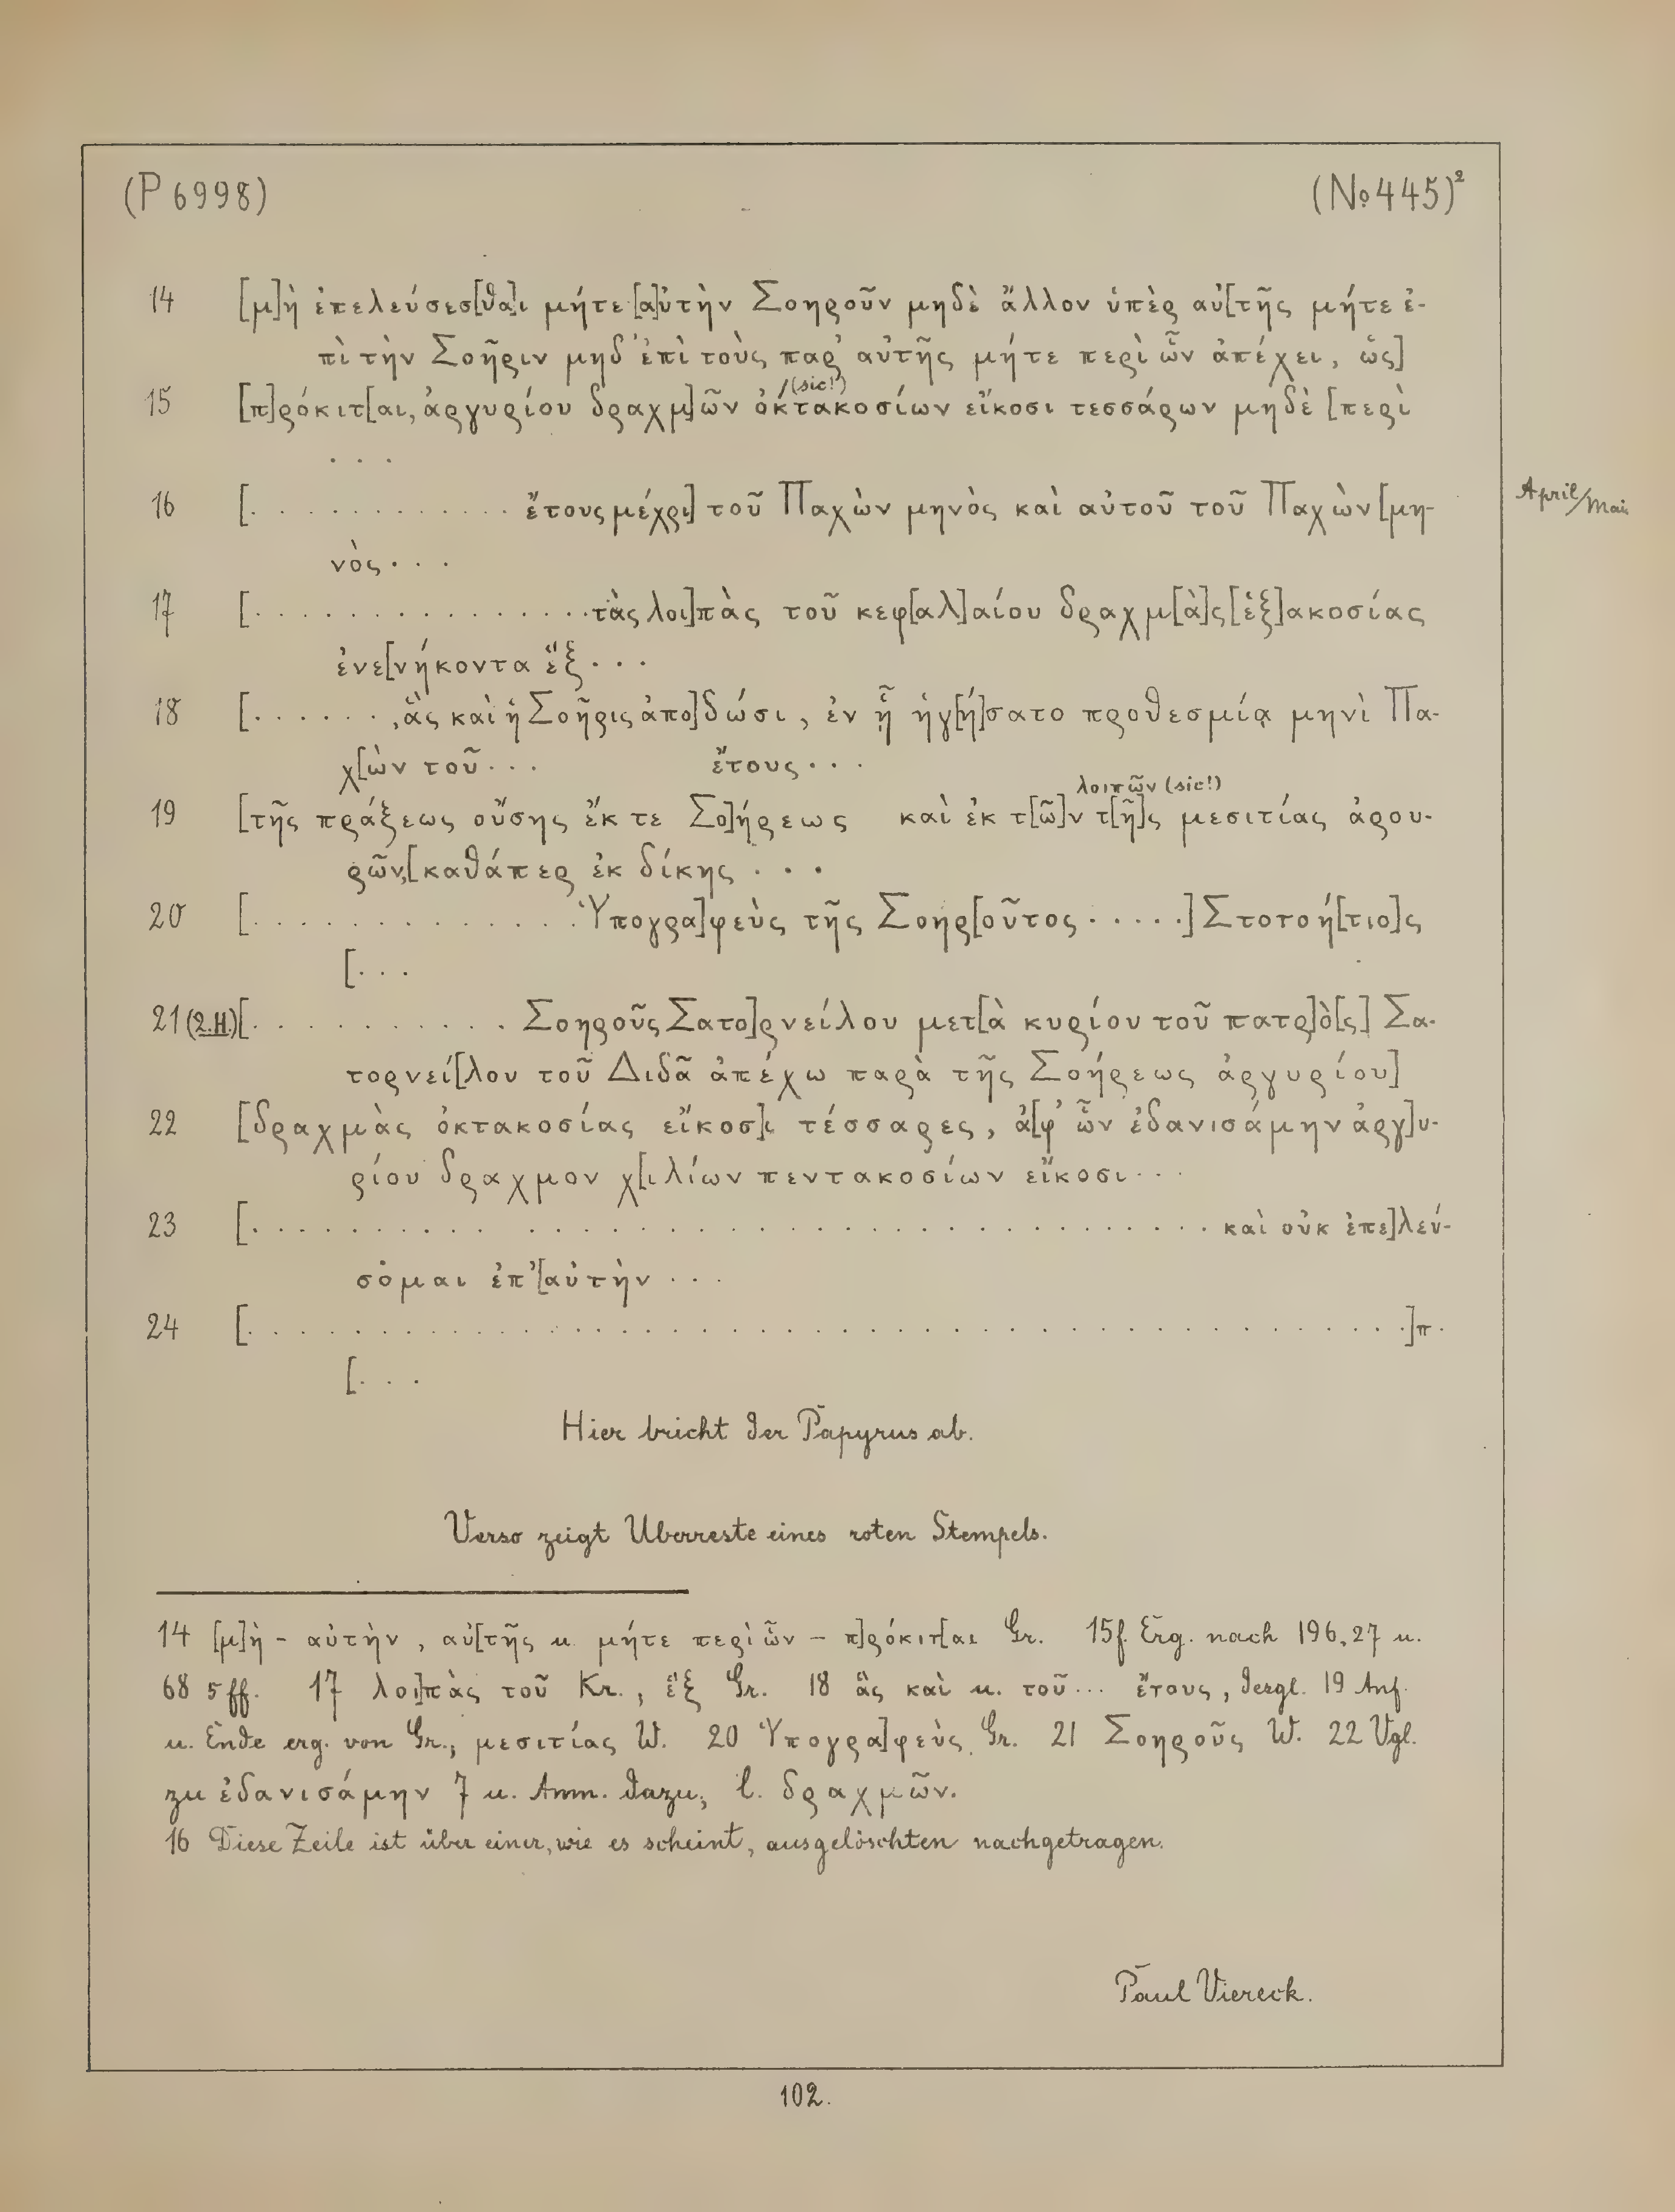 (P 6998)
(No 445)²
14 [μ]ὴ ἐπελεύσεσ[θα]ι μήτε [α]ὐτὴν Σοηροῦν μηδὲ ἄλλον ὑπὲρ αὐ[τῆς μήτε ἐ-
πὶ τὴν Σοῆριν μηδ' ἐπὶ τοὺς παρ' αὐτῆς μήτε περὶ ὧν ἀπέχει, ὡς]
/(sic!)
15 [π]ρόκιτ[αι, ἀργυρίου δραχμ]ῶν ὀκτακοσίων εἴκοσι τεσσάρων μηδὲ [περὶ
. . .
16 [. . . . . . . . . . . . ἔτους μέχρι] τοῦ Παχὼν μηνὸς καὶ αὐτοῦ τοῦ Παχὼν [μη-
April/Mai
νὸς . . .
17 [. . . . . . . . . . . . . . . τὰς λοι]πὰς τοῦ κεφ[αλ]αίου δραχμ[ὰ]ς [ἑξ]ακοσίας
ἐνε[νήκοντα ἓξ . . .
18 [. . . . . . , ἃς καὶ ἡ Σοῆρις ἀπο]δώσι, ἐν ᾗ ἡγ[ή]σατο προθεσμίᾳ μηνὶ Πα-
χ[ὼν τοῦ . . . ἔτους . . .
λοιπῶν (sic!)
19 [τῆς πράξεως οὔσης ἔκ τε Σο]ήρεως καὶ ἐκ τ[ῶ]ν τ[ῆ]ς μεσιτίας ἀρου-
ρῶν, [καθάπερ ἐκ δίκης . . .
20 [. . . . . . . . . . . . . Ὑπογρα]φεὺς τῆς Σοηρ[οῦτος . . . . .] Στοτοή[τιο]ς
[. . .
21 (2. H.) [. . . . . . . . . . . Σοηροῦς Σατο]ρνείλου μετ[ὰ κυρίου τοῦ πατρ]ὸ[ς] Σα-
τορνεί[λου τοῦ Διδᾶ ἀπέχω παρὰ τῆς Σοήρεως ἀργυρίου]
22 [δραχμὰς ὀκτακοσίας εἴκοσ]ι τέσσαρες, ἀ[φ' ὧν ἐδανισάμην ἀργ]υ-
ρίου δραχμον χ[ιλίων πεντακοσίων εἴκοσι . . .
23 [. . . . . . . . . . . . . . . . . . . . . . . . . . . . . . . . . καὶ οὐκ ἐπε]λεύ-
σομαι ἐπ' [αὐτὴν . . .
24 [. . . . . . . . . . . . . . . . . . . . . . . . . . . . . . . . . . . . . . . .]π .
[. . .
Hier bricht der Papyrus ab.
Verso zeigt Überreste eines roten Stempels.
14 [μ]ὴ – αὐτὴν, αὐ[τῆς u. μήτε περὶ ὧν – π]ρόκιτ[αι Gr. 15f. Erg. nach 196,27 u.
68 5 ff. 17 λοι]πὰς τοῦ Kr., ἓξ Gr. 18 ἃς καὶ u. τοῦ . . . ἔτους, dergl. 19 Anf.
u. Ende erg. von Gr., μεσιτίας W. 20 Ὑπογρα]φεὺς Gr. 21 Σοηροῦς W. 22 Vgl.
zu ἐδανισάμην 7 u. Anm. dazu; l. δραχμῶν.
16 Diese Zeile ist über einer, wie es scheint, ausgelöschten nachgetragen.
Paul Viereck.
102.